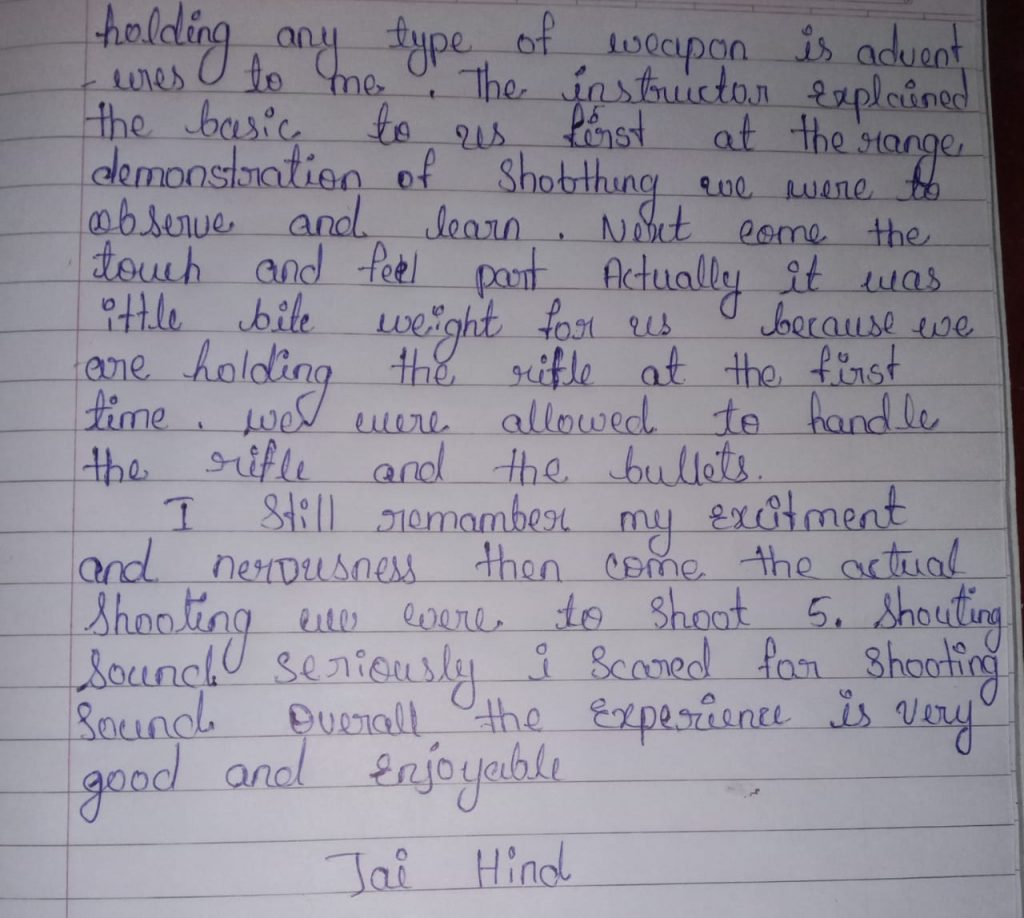 holding any type of weapon is advent
-ures to me . The instructor explained
the basic to us first at the range
demonstration of shobthing we were to
observe and learn . Next come the
touch and feel part Actually it was
ittle bite weight for us because we
are holding the rifle at the first
time . we were allowed to handle
the rifle and the bullets.
I Still remamber my excitment
and nervousness then come the actual
Shooting we were to shoot 5. Shouting
Sound seriously i Scared for shooting
sound Overall the Experience is very
good and Enjoyable
Jai Hind